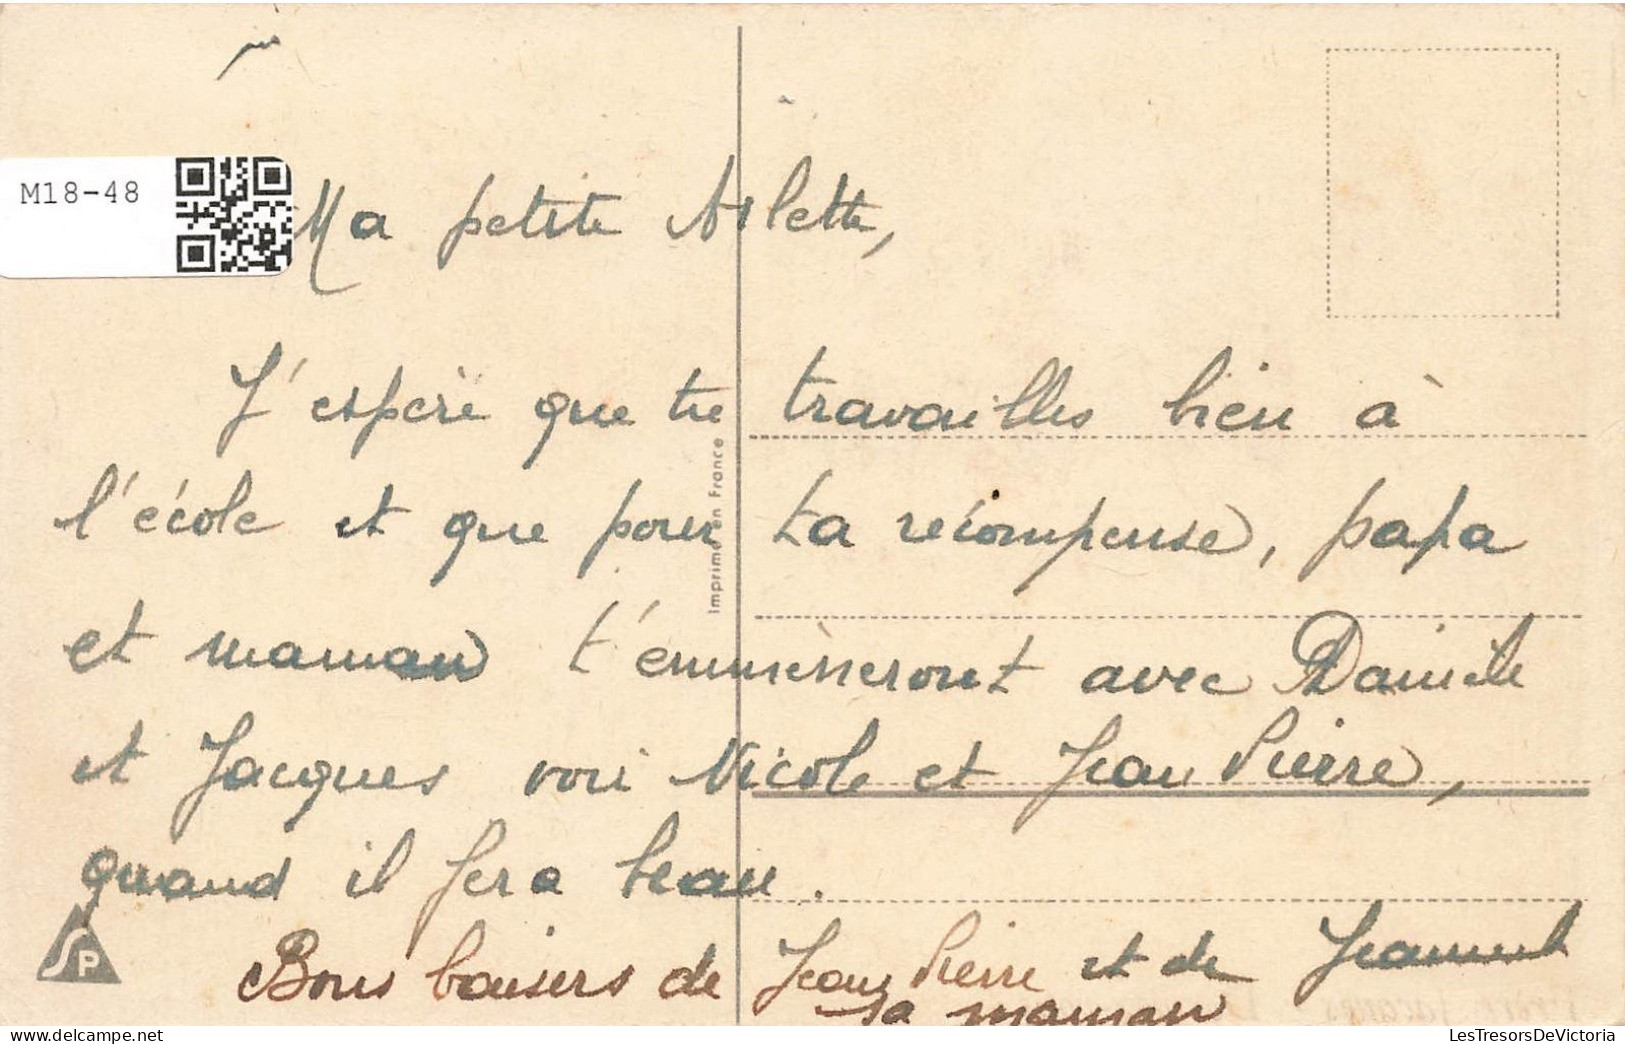 M18-48
Ma petite Arlette,
J'espère que tu travailles bien à
l'école et que pour ta récompense, papa
et maman t'emmèneront avec Danièle
et Jacques voir Nicole et Jean Pierre,
quand il fera beau.
Bons baisers de Jean Pierre et de
sa maman
Imprimé en France
SP
LesTresorsDeVictoria